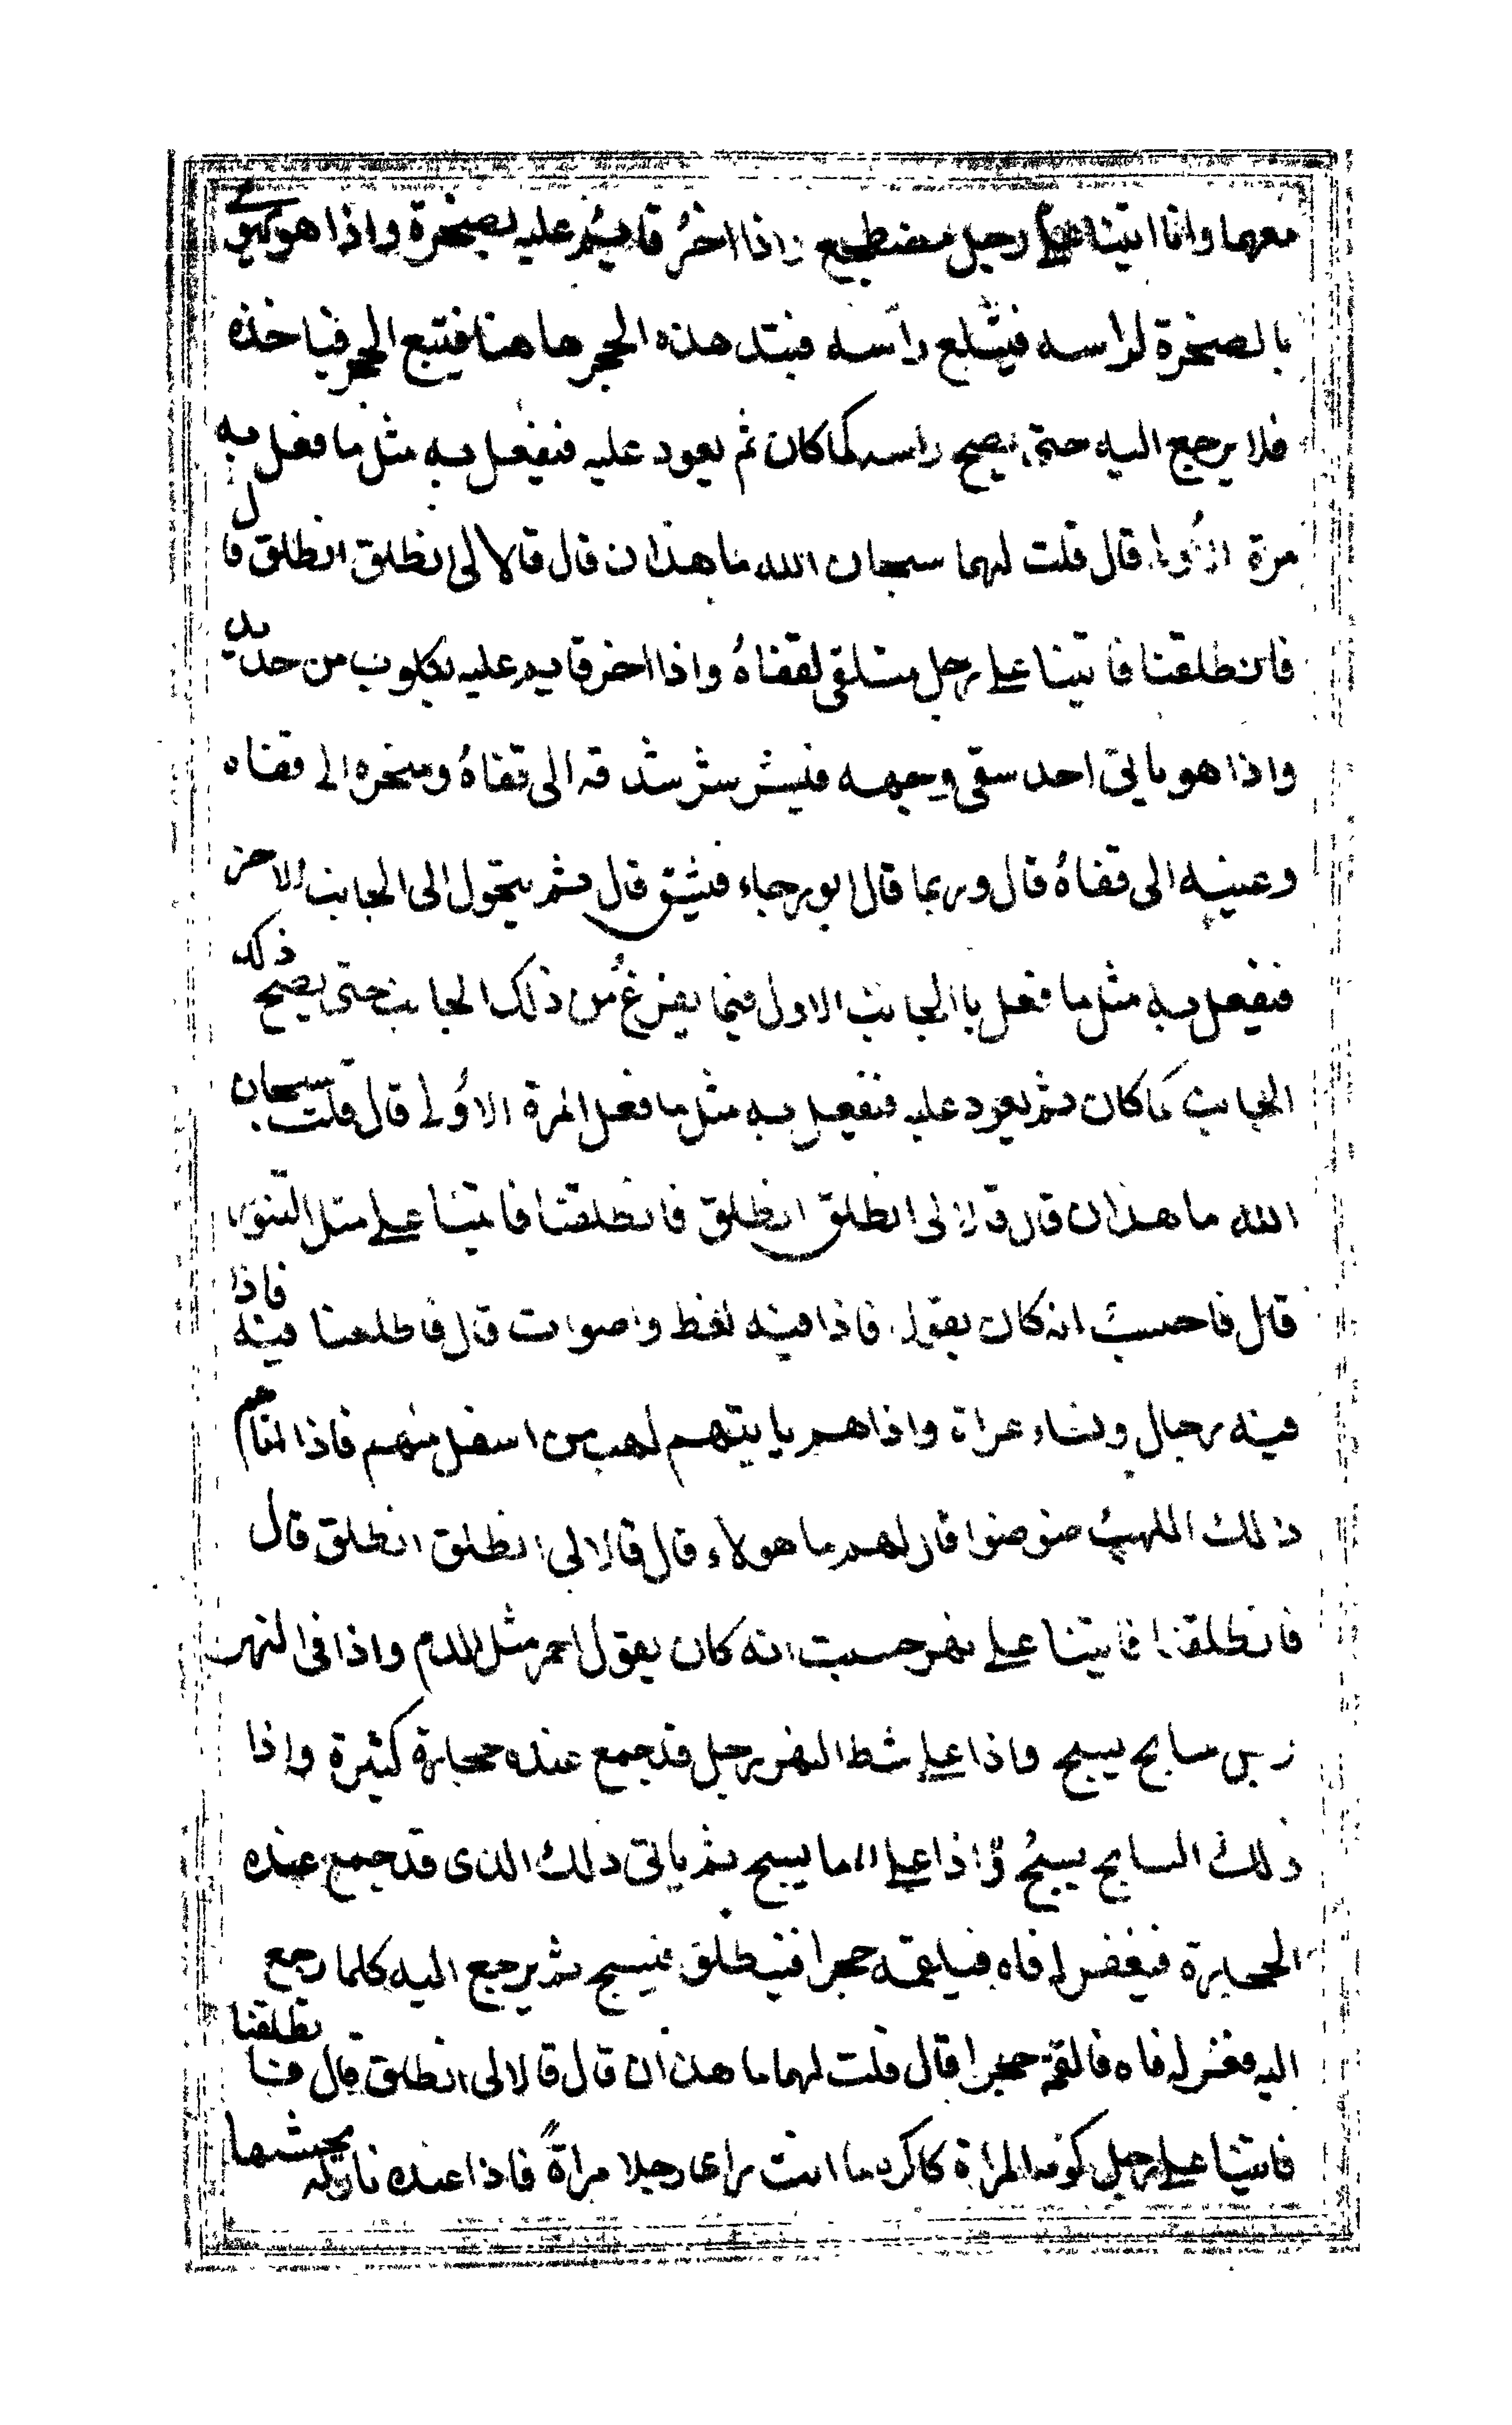 معهما وانا اتينا على رجل مضطجع واذا اخرُ قايم عليه بصخرة واذا هو يهوي
بالصخرة لراسه فيثلع رأسه فيتد هذه الحجر هاهنا فيتبع الحجر فياخذه
فلا يرجع اليه حتى يصبح راسه كما كان ثم يعود عليه فيفعل به مثل ما فعل به
مرة الأولى قال قلت لهما سبحان الله ما هذان قال قالا لى انطلق انطلق قال
فانطلقنا فاتينا على رجل مستلقى لقفاهُ واذا اخر قايم عليه بكلوب من حديد
واذا هو ياتى احد شقى وجهه فيشرشر شدقه الى قفاهُ ومنخره الى قفاه
وعينيه الى قفاهُ قال وربما قال ابو رجاء فيشق قال ثم يتحول الى الجانب الاخر
فيفعل به مثل ما فعل باالجانب الاول فما يفرغ من ذلك الجانب حتى يصح ذلك
الجانب كما كان ثم يعود عليه فيفعل به مثل ما فعل المرة الاُولى قال قلت سبحان
الله ما هذان قال قالا لى انطلق انطلق فانطلقنا فاتينا على مثل التنور
قال فاحسبُ انه كان يقول فاذا فيه لغط واصوات قال فاطلعنا فيه فاذا
فيه رجال ونساء عراة واذا هم ياتيهم لهب من اسفل منهم فاذا اتاهم
ذلك اللهبُ ضوضوا قال لهم ما هولاء قال قالا لى انطلق انطلق قال
فانطلقنا فاتينا على نهر حسبت انه كان يقول احمر مثل الدم واذا فى النهر
رجل سابح يسبح واذا على شط النهر رجل قد جمع عنده حجارة كثيرة واذا
ذلك السابح يسبحُ واذا على ما يسبح ثم ياتى ذلك الذى قد جمع عنده
الحجارة فيفغر له فاه فيلقمه حجرا فينطلق فيسبح ثم يرجع اليه كلما رجع
اليه فغر له فاه فالقمه حجرا قال قلت لهما ما هذان قال قالا لى انطلق قال فانطلقنا
فاتينا على رجل كريه المراة كاكره ما انت راى رجلا مراةً فاذا عنده نار له يحشها